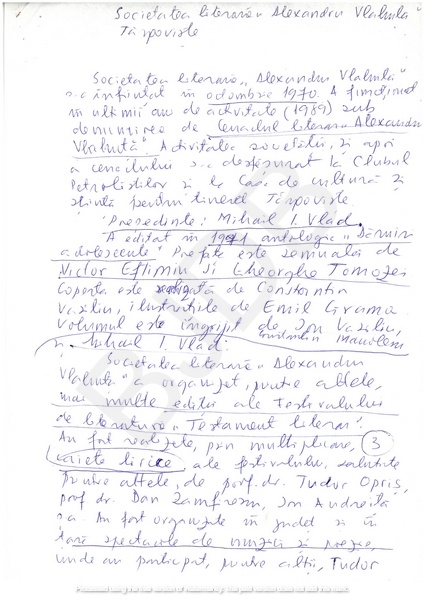 Societatea literară „Alexandru Vlahuță"
Târgoviște
Societatea literară „Alexandru Vlahuță"
s-a înființat în octombrie 1970. A funcționat
în ultimii ani de activitate (1989) sub
denumirea de Cenaclul literar „Alexandru
Vlahuță". Activitatea societății, și apoi
a cenaclului s-a desfășurat la Clubul
Petroliștilor și la Casa de cultură și
știință pentru tineret Târgoviște.
Președinte: Mihail I. Vlad.
A editat în 1971 antologia „Lumini
adolescente". Prefața este semnată de
Victor Eftimiu și Gheorghe Tomozei
Coperta este realizată de Constantin
Vasiliu, ilustrațiile de Emil Grama.
Volumul este îngrijit de Ion Vasiliu,
Constantin Manolescu
și Mihail I. Vlad.
Societatea literară „Alexandru
Vlahuță" a organizat, printre altele,
mai multe ediții ale Festivalului
de literatură „Testament literar".
Au fost realizate, prin multiplicare, 3
caiete lirice ale festivalului, salutate
printre altele, de prof. dr. Tudor Opriș,
prof. dr. Dan Zamfirescu, Ion Andreiță
ș.a. Au fost organizate în județ și în
țară spectacole de muzică și poezie,
unde au participat, printre alții, Tudor